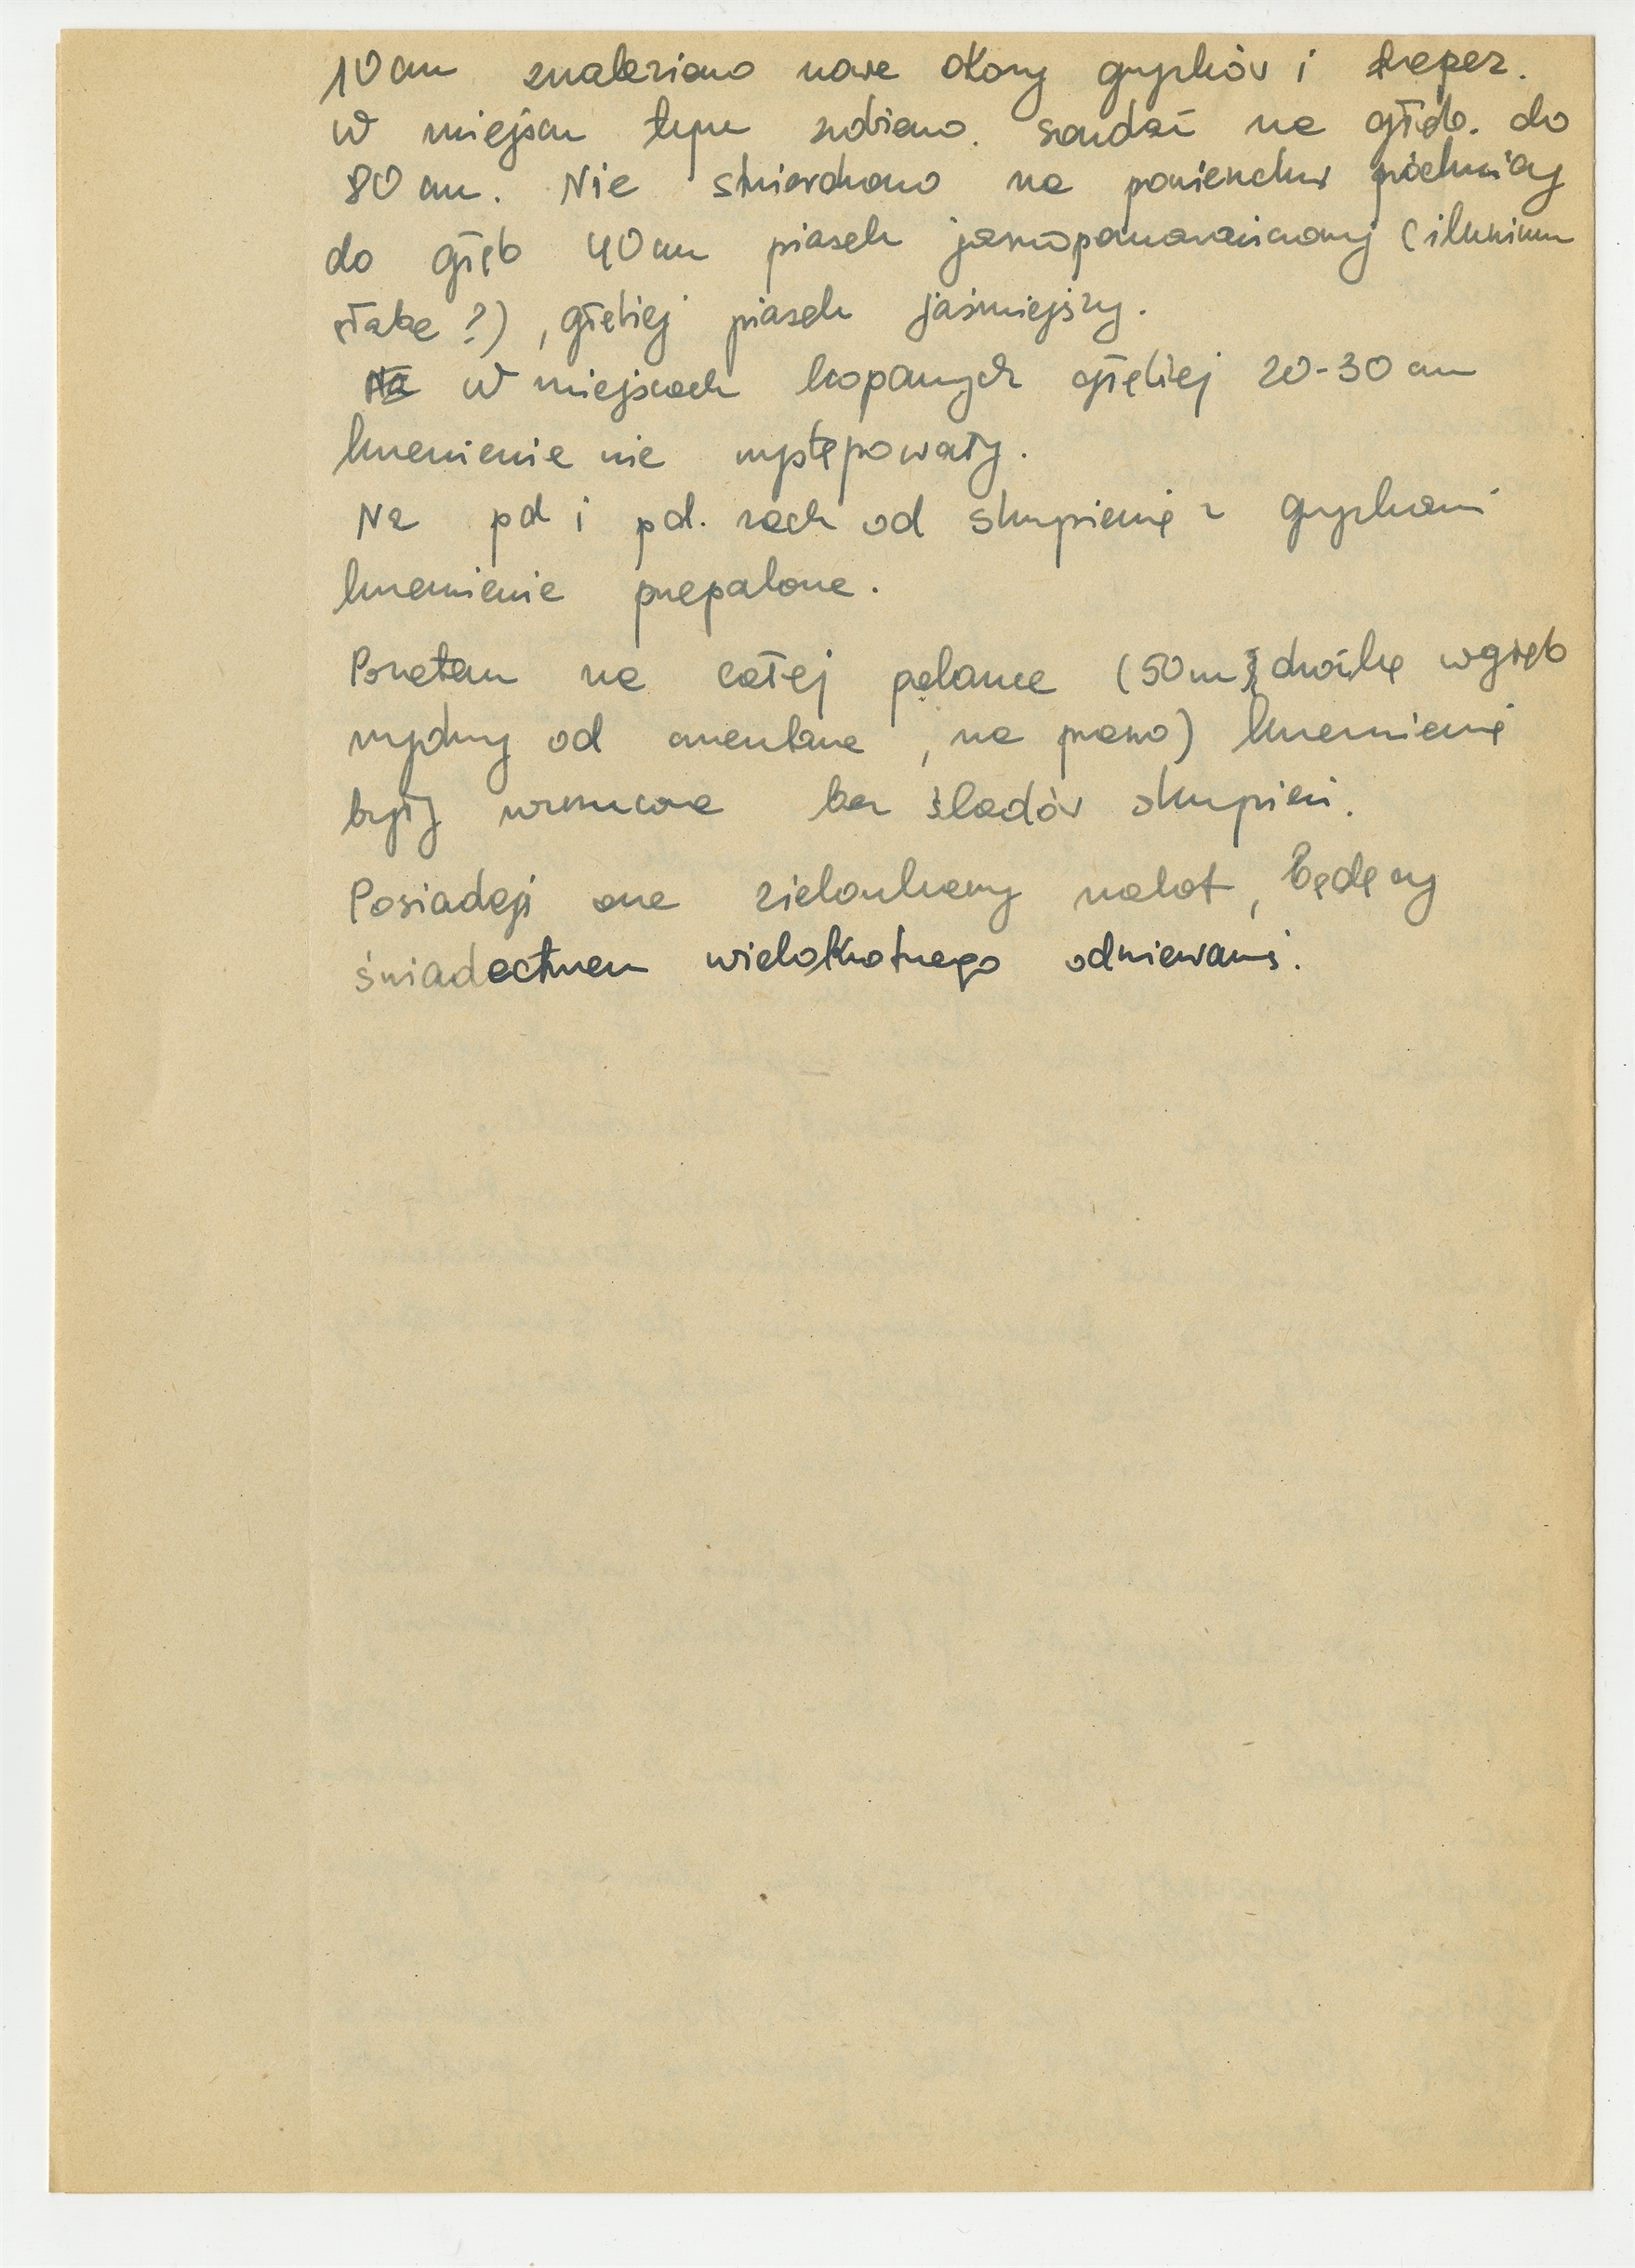 10 cm znaleziono nowe okazy gryzków i trapez.
W miejscu tym zrobiono sondaż na głęb. do
80 cm. Nie stwierdzono na powierzchni próchnicy
do głęb 40 cm piasek jasnopomarańczowy (iluvium
słabe ?), głębiej piasek jaśniejszy.
Na W miejscach kopanych głębiej 20-30 cm
krzemienie nie występowały.
Na pd i pd. zach od skupienia z gryzkami
krzemienie przepalone.
Pozatem na całej polance (50 m dróżką wgłęb
wydmy od cmentarza, na prawo) krzemienie
były rozrzucone bez śladów skupień.
Posiadają one zielonkawy nalot, będący
świadectwem wielokrotnego odwiewania.